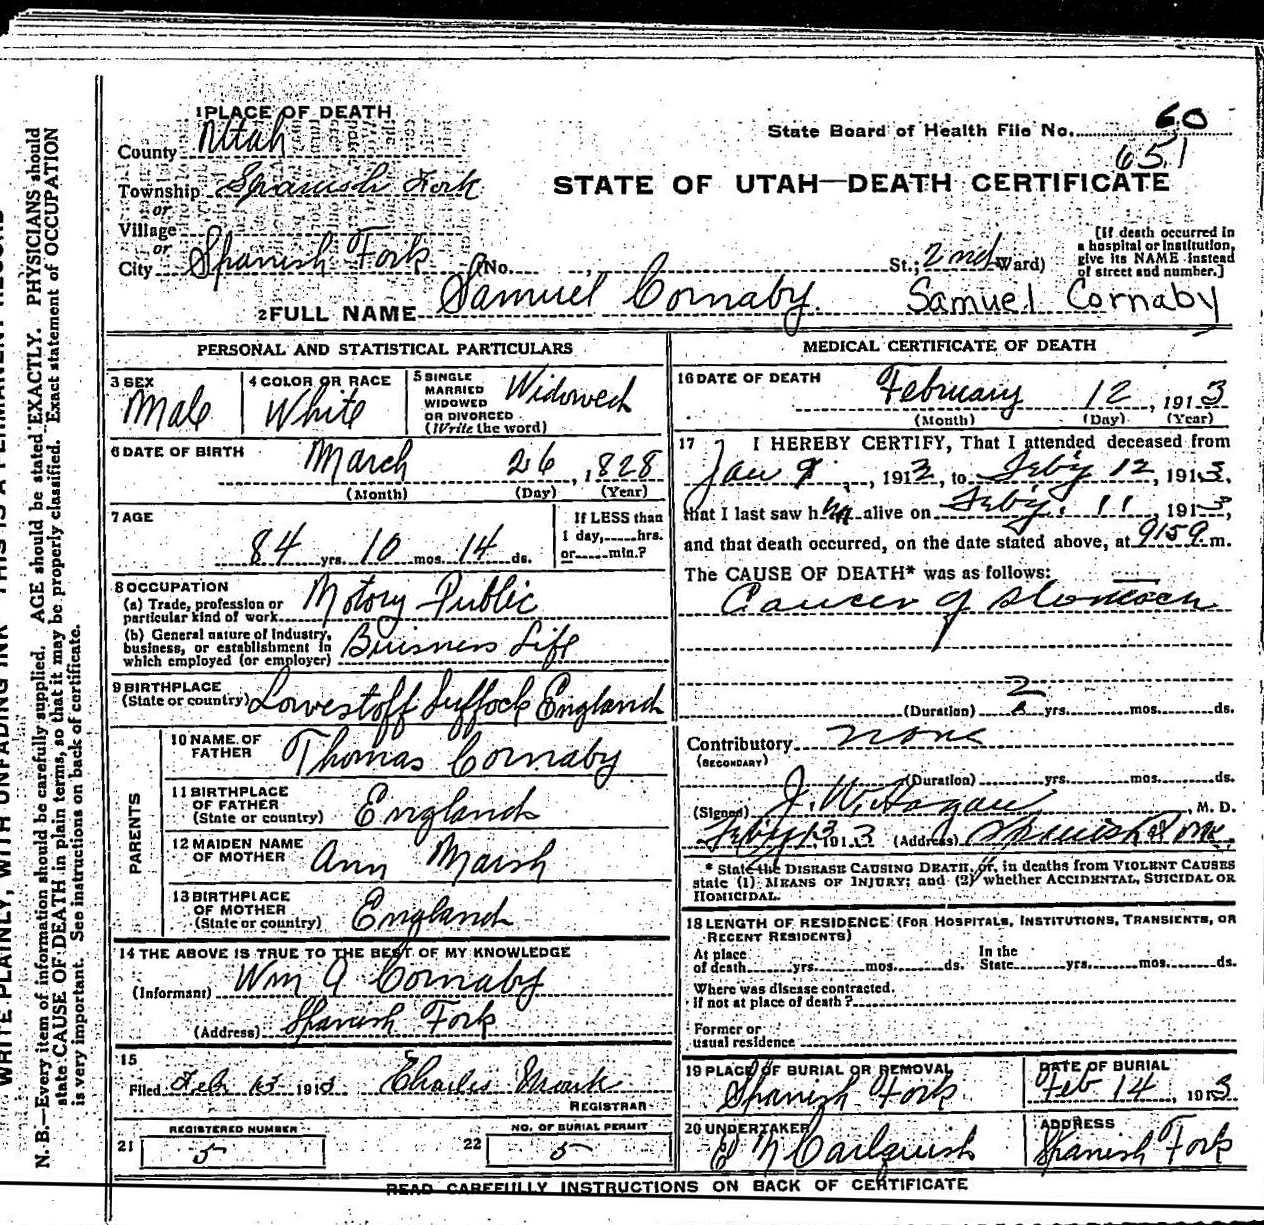 1 PLACE OF DEATH
County Utah
State Board of Health File No. 60
651
Township Spanish Fork
or
STATE OF UTAH—DEATH CERTIFICATE
Village
or
City Spanish Fork (No. , St.; 2nd Ward)
[If death occurred in a hospital or institution, give its NAME instead of street and number.]
2 FULL NAME Samuel Cornaby. Samuel Cornaby
PERSONAL AND STATISTICAL PARTICULARS
3 SEX Male
4 COLOR OR RACE White
5 SINGLE MARRIED WIDOWED OR DIVORCED (Write the word) Widowed
6 DATE OF BIRTH March 26, 1828
(Month) (Day) (Year)
7 AGE
84 yrs. 10 mos. 14 ds.
If LESS than 1 day, hrs. or min.?
8 OCCUPATION
(a) Trade, profession or particular kind of work Notory Public
(b) General nature of Industry, business, or establishment in which employed (or employer) Buisness Life
9 BIRTHPLACE (State or country) Lowestoff Suffock England
PARENTS
10 NAME OF FATHER Thomas Cornaby
11 BIRTHPLACE OF FATHER (State or country) England
12 MAIDEN NAME OF MOTHER Ann Marsh
13 BIRTHPLACE OF MOTHER (State or country) England
14 THE ABOVE IS TRUE TO THE BEST OF MY KNOWLEDGE
(Informant) Wm A Cornaby
(Address) Spanish Fork
15
Filed Feb 1913 Charles Monk
REGISTRAR
REGISTERED NUMBER
21 5
NO. OF BURIAL PERMIT
22 5
MEDICAL CERTIFICATE OF DEATH
16 DATE OF DEATH February 12, 1913
(Month) (Day) (Year)
17 I HEREBY CERTIFY, That I attended deceased from
Jan 9, 1913, to Feby 12, 1913,
that I last saw h alive on Feby. 11, 1913,
and that death occurred, on the date stated above, at m.
The CAUSE OF DEATH* was as follows:
Cancer of stomach
(Duration) 2 yrs. mos. ds.
Contributory none
(SECONDARY)
(Duration) yrs. mos. ds.
(Signed) J. W. Hagan, M. D.
Feby 13, 1913 (Address) Spanish Fork
* State the DISEASE CAUSING DEATH, or, in deaths from VIOLENT CAUSES
state (1) MEANS OF INJURY; and (2) whether ACCIDENTAL, SUICIDAL OR
HOMICIDAL.
18 LENGTH OF RESIDENCE (FOR HOSPITALS, INSTITUTIONS, TRANSIENTS, OR
RECENT RESIDENTS)
At place of death yrs. mos. ds. In the State yrs. mos. ds.
Where was disease contracted. if not at place of death?
Former or usual residence
19 PLACE OF BURIAL OR REMOVAL Spanish Fork
DATE OF BURIAL Feb 14, 1913
20 UNDERTAKER Carlquish
ADDRESS Spanish Fork
READ CAREFULLY INSTRUCTIONS ON BACK OF CERTIFICATE
WRITE PLAINLY, WITH UNFADING INK—THIS IS A PERMANENT RECORD
N. B.—Every item of information should be carefully supplied. AGE should be stated EXACTLY. PHYSICIANS should
state CAUSE OF DEATH in plain terms, so that it may be properly classified. Exact statement of OCCUPATION
is very important. See instructions on back of certificate.